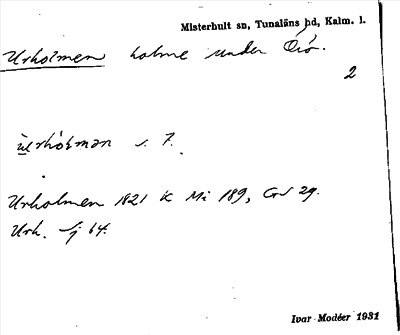 Misterhult sn, Tunaläns hd, Kalm. l.
Urholmen holme under Örö.
2
s. 7.
Urholmen 1821 K Mi 189, GS 29.
Urh. Sj 64.
Ivar Modéer 1931